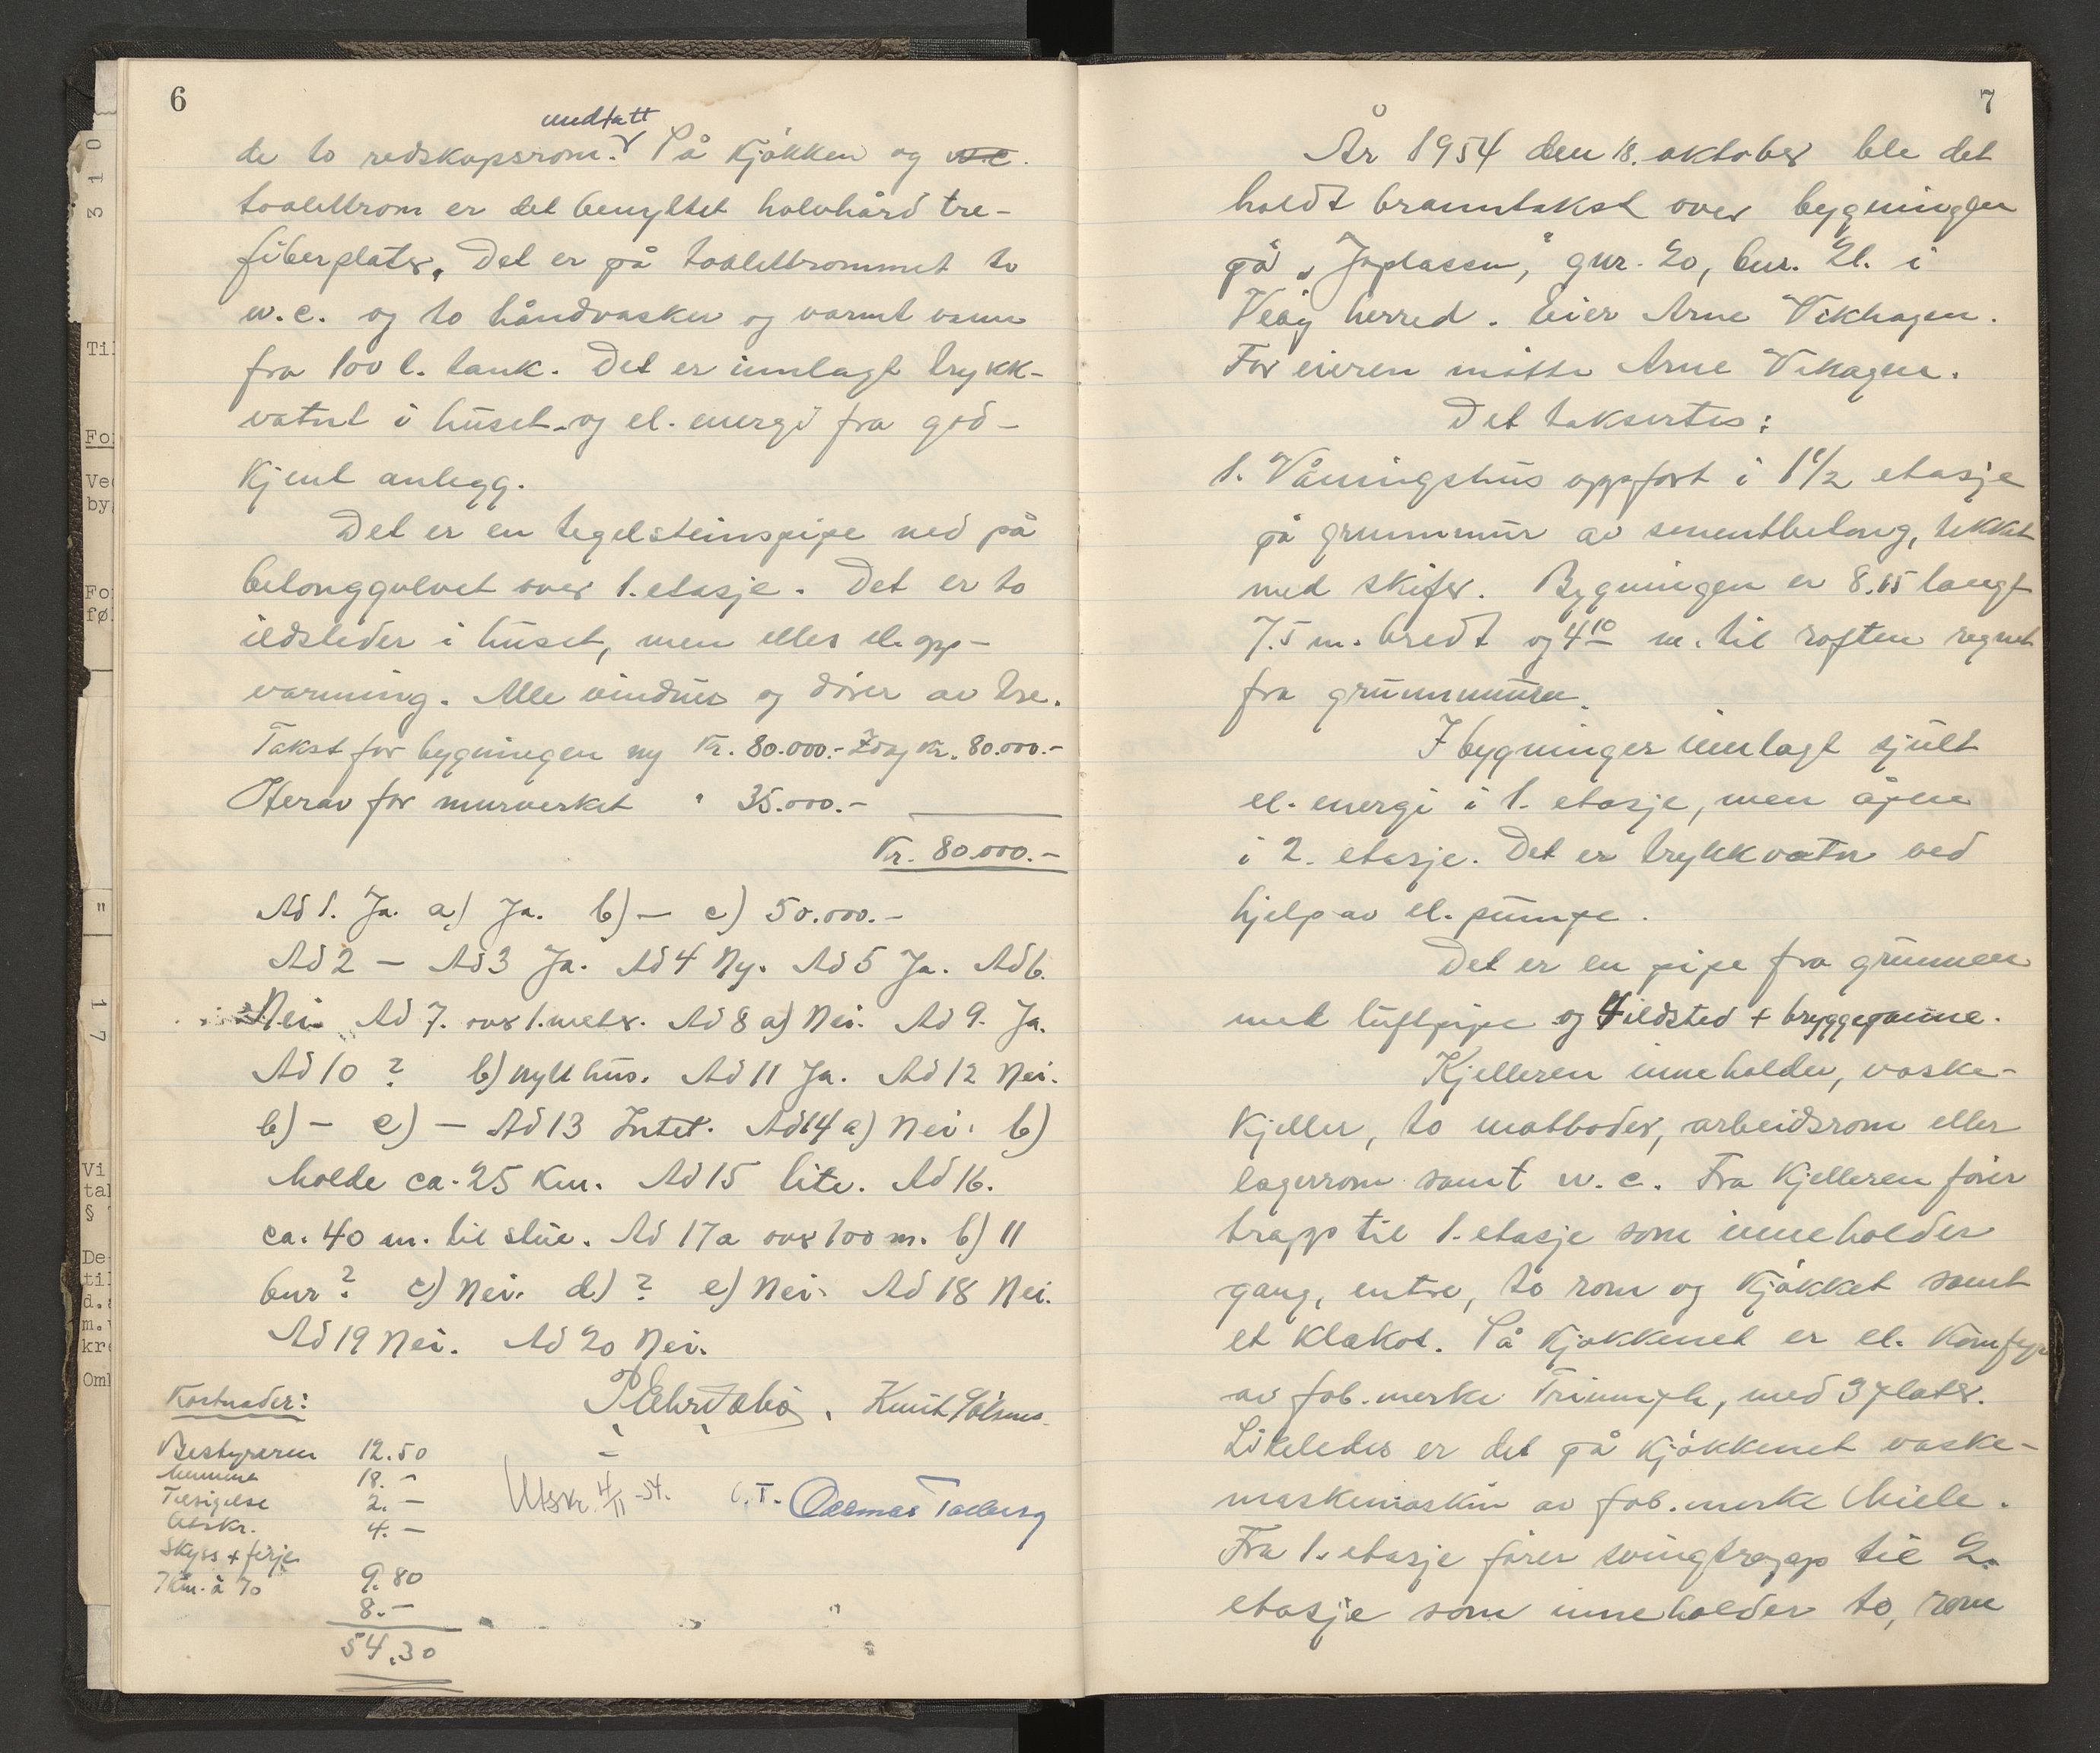 6
undtatt
de to redskapsrom. På kjøkken og w.c.
toalettrom er det benyttet halvhård tre-
fiberplater. Det er på toalettrommet to
w.c. og to håndvasker og varmt vann
fra 100 l. tank. Det er innlagt trykk-
vatnt i huset og el. energi fra god-
kjent anlegg.
Det er en tegelsteinspipe ned på
betonggolvet over 1. etasje. Det er to
ildsteder i huset, men elles el. opp-
varming. Alle vinduer og dører av tre.
Takst for bygningen ny Kr. 80.000.- Idag Kr. 80.000.-
Herav for murverket " 35.000.-
Kr. 80.000.-
Ad 1. Ja. a) Ja. b) — c) 50.000.-
Ad 2 — Ad 3 Ja. Ad 4 Ny. Ad 5 Ja. Ad 6.
Nei. Ad 7. over 1. meter. Ad 8 a) Nei. Ad 9. Ja.
Ad 10 ? b) nytt hus. Ad 11 Ja. Ad 12 Nei.
b) — c) — Ad 13 Intet. Ad 14 a) Nei. b)
Molde ca. 25 km. Ad 15 lite. Ad 16.
ca. 40 m. til stue. Ad 17a over 100 m. b) 11
bur ? c) Nei. d) ? e) Nei. Ad 18 Nei.
Ad 19 Nei. Ad 20 Nei.
Kostnader:
Knut
Bestyreren 12.50
Mennene 18.-
Tilsigelse 2.-
Utskr. 4.-
Skyss + ferje
7 km. à 70 9.80
8.-
54.30
Utskr. 4/11-54.
7
År 1954 den 18. oktober ble det
holdt branntakst over bygningen
på „Joplassen," gnr. 20, bnr. 21. i
Veøy herred. Eier Arne Vikhagen.
For eieren møtte Arne Vikagen.
Det taksertes:
1. Våningshus oppført i 1 1/2 etasje
på grunnmur av sementbetong, tekket
med skifer. Bygningen er 8.65 langt
7.5 m. bredt og 4.10 m. til raften regnet
fra grunnmuren.
I bygninger innlagt sjult
el. energi i 1. etasje, men åpne
i 2. etasje. Det er trykkvatn ved
hjelp av el. pumpe.
Det er en pipe fra grunnen
med luftpipe og 4 ildsted + bryggepanne.
Kjelleren inneholder, vaske-
kjeller, to matboder, arbeidsrom eller
lagerrom samt w.c. Fra kjelleren fører
trapp til 1. etasje som inneholder
gang, entre, to rom og kjøkket samt
et klækot. På kjøkkenet er el. komfyr
av fab. merke Triumph, med 3 plater.
Likeledes er det på kjøkkenet vaske-
maskimaskin av fab. merke Miele.
Fra 1. etasje fører svingtrapp til 2.
etasje som inneholder to, rom